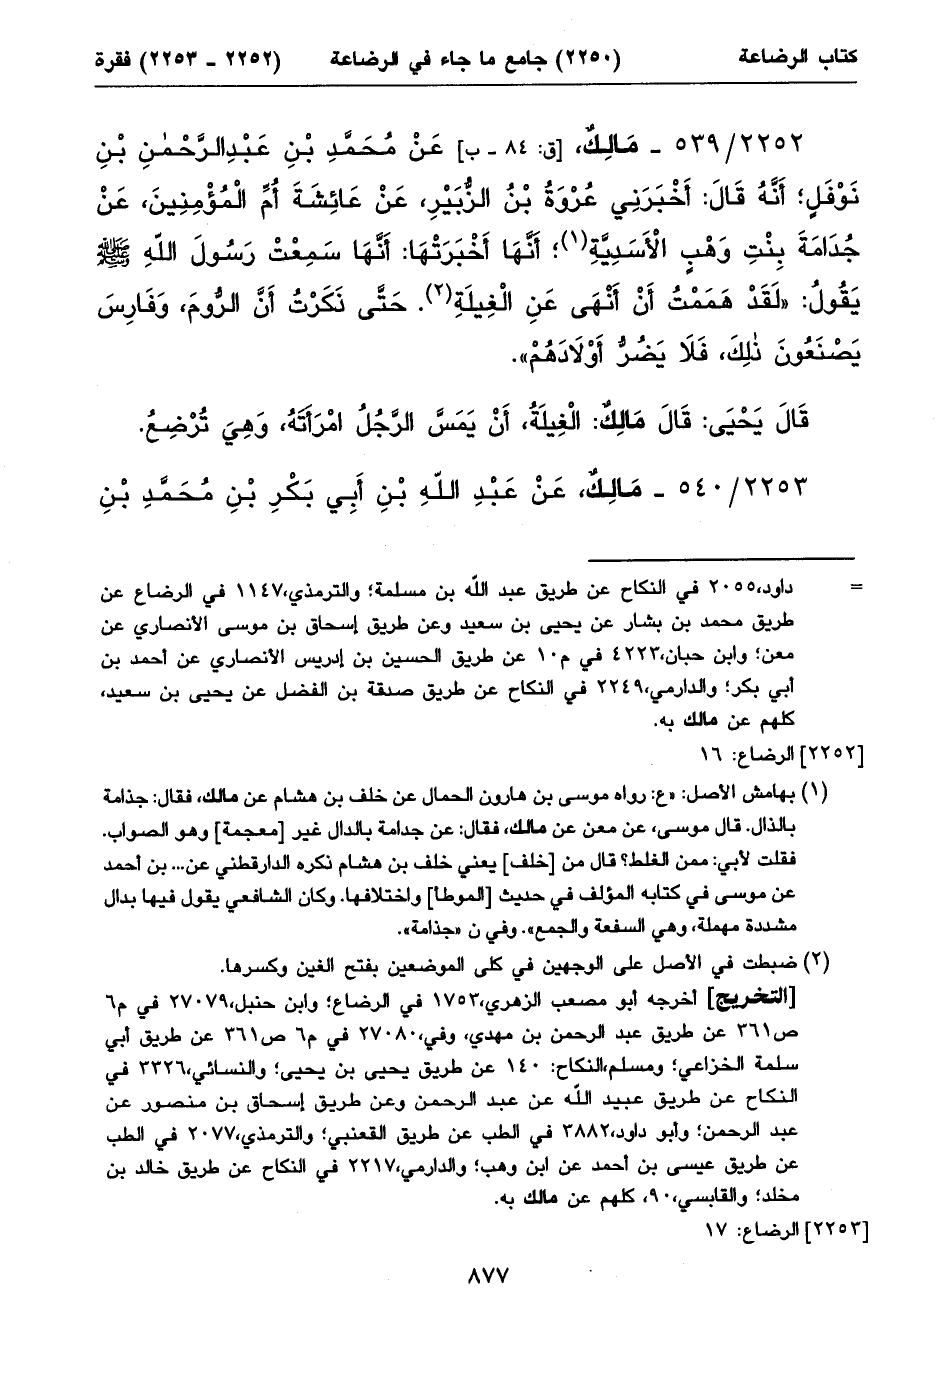 كتاب الرضاعة (٢٢٥٠) جامع ما جاء في الرضاعة (٢٢٥٢ ـ ٢٢٥٣) فقرة
٥٣٩/٢٢٥٢ ـ مَالِكٌ، [ق: ٨٤ ـ ب] عَنْ مُحَمَّدِ بْنِ عَبْدِالرَّحْمٰنِ بْنِ
نَوْفَلٍ؛ أَنَّهُ قَالَ: أَخْبَرَنِي عُرْوَةُ بْنُ الزُّبَيْرِ، عَنْ عَائِشَةَ أُمِّ الْمُؤْمِنِينَ، عَنْ
جُدَامَةَ بِنْتِ وَهْبٍ الْأَسَدِيَّةِ(١)؛ أَنَّهَا أَخْبَرَتْهَا: أَنَّهَا سَمِعْتْ رَسُولَ اللّهِ ﷺ
يَقُولُ: «لَقَدْ هَمَمْتُ أَنْ أَنْهَى عَنِ الْغِيلَةِ(٢). حَتَّى ذَكَرْتُ أَنَّ الرُّومَ، وَفَارِسَ
يَصْنَعُونَ ذٰلِكَ، فَلَا يَضُرُّ أَوْلَادَهُمْ».
قَالَ يَحْيَى: قَالَ مَالِكٌ: الْغِيلَةُ، أَنْ يَمَسَّ الرَّجُلُ امْرَأَتَهُ، وَهِيَ تُرْضِعُ.
٥٤٠/٢٢٥٣ ـ مَالِكٌ، عَنْ عَبْدِ اللّهِ بْنِ أَبِي بَكْرِ بْنِ مُحَمَّدِ بْنِ
= داود،٢٠٥٥ في النكاح عن طريق عبد اللّه بن مسلمة؛ والترمذي،١١٤٧ في الرضاع عن
طريق محمد بن بشار عن يحيى بن سعيد وعن طريق إسحاق بن موسى الأنصاري عن
معن؛ وابن حبان،٤٢٢٣ في م١٠ عن طريق الحسين بن إدريس الأنصاري عن أحمد بن
أبي بكر؛ والدارمي،٢٢٤٩ في النكاح عن طريق صدقة بن الفضل عن يحيى بن سعيد،
كلهم عن مالك به.
[٢٢٥٢] الرضاع: ١٦
(١) بهامش الأصل: «ع: رواه موسى بن هارون الحمال عن خلف بن هشام عن مالك، فقال: جذامة
بالذال. قال موسى، عن معن عن مالك، فقال: عن جدامة بالدال غير [معجمة] وهو الصواب.
فقلت لأبي: ممن الغلط؟ قال من [خلف] يعني خلف بن هشام ذكره الدارقطني عن... بن أحمد
عن موسى في كتابه المؤلف في حديث [الموطأ] واختلافها. وكان الشافعي يقول فيها بدال
مشددة مهملة، وهي السفعة والجمع». وفي ن «جذامة».
(٢) ضبطت في الأصل على الوجهين في كلى الموضعين بفتح الغين وكسرها.
[التخريج] أخرجه أبو مصعب الزهري،١٧٥٣ في الرضاع؛ وابن حنبل،٢٧٠٧٩ في م٦
ص٣٦١ عن طريق عبد الرحمن بن مهدي، وفي،٢٧٠٨٠ في م٦ ص٣٦١ عن طريق أبي
سلمة الخزاعي؛ ومسلم،النكاح: ١٤٠ عن طريق يحيى بن يحيى؛ والنسائي،٣٣٢٦ في
النكاح عن طريق عبيد اللّه عن عبد الرحمن وعن طريق إسحاق بن منصور عن
عبد الرحمن؛ وأبو داود،٣٨٨٢ في الطب عن طريق القعنبي؛ والترمذي،٢٠٧٧ في الطب
عن طريق عيسى بن أحمد عن ابن وهب؛ والدارمي،٢٢١٧ في النكاح عن طريق خالد بن
مخلد؛ والقابسي،٩٠، كلهم عن مالك به.
[٢٢٥٣] الرضاع: ١٧
٨٧٧